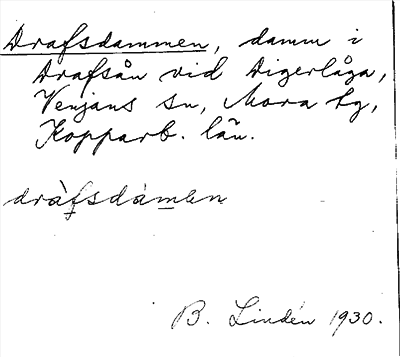 Drafsdammen, damm i
Drafsån vid Digerlåga,
Venjans sn, Mora tg,
Kopparb. län.
dràfsdàmen
B. Lindén 1930.